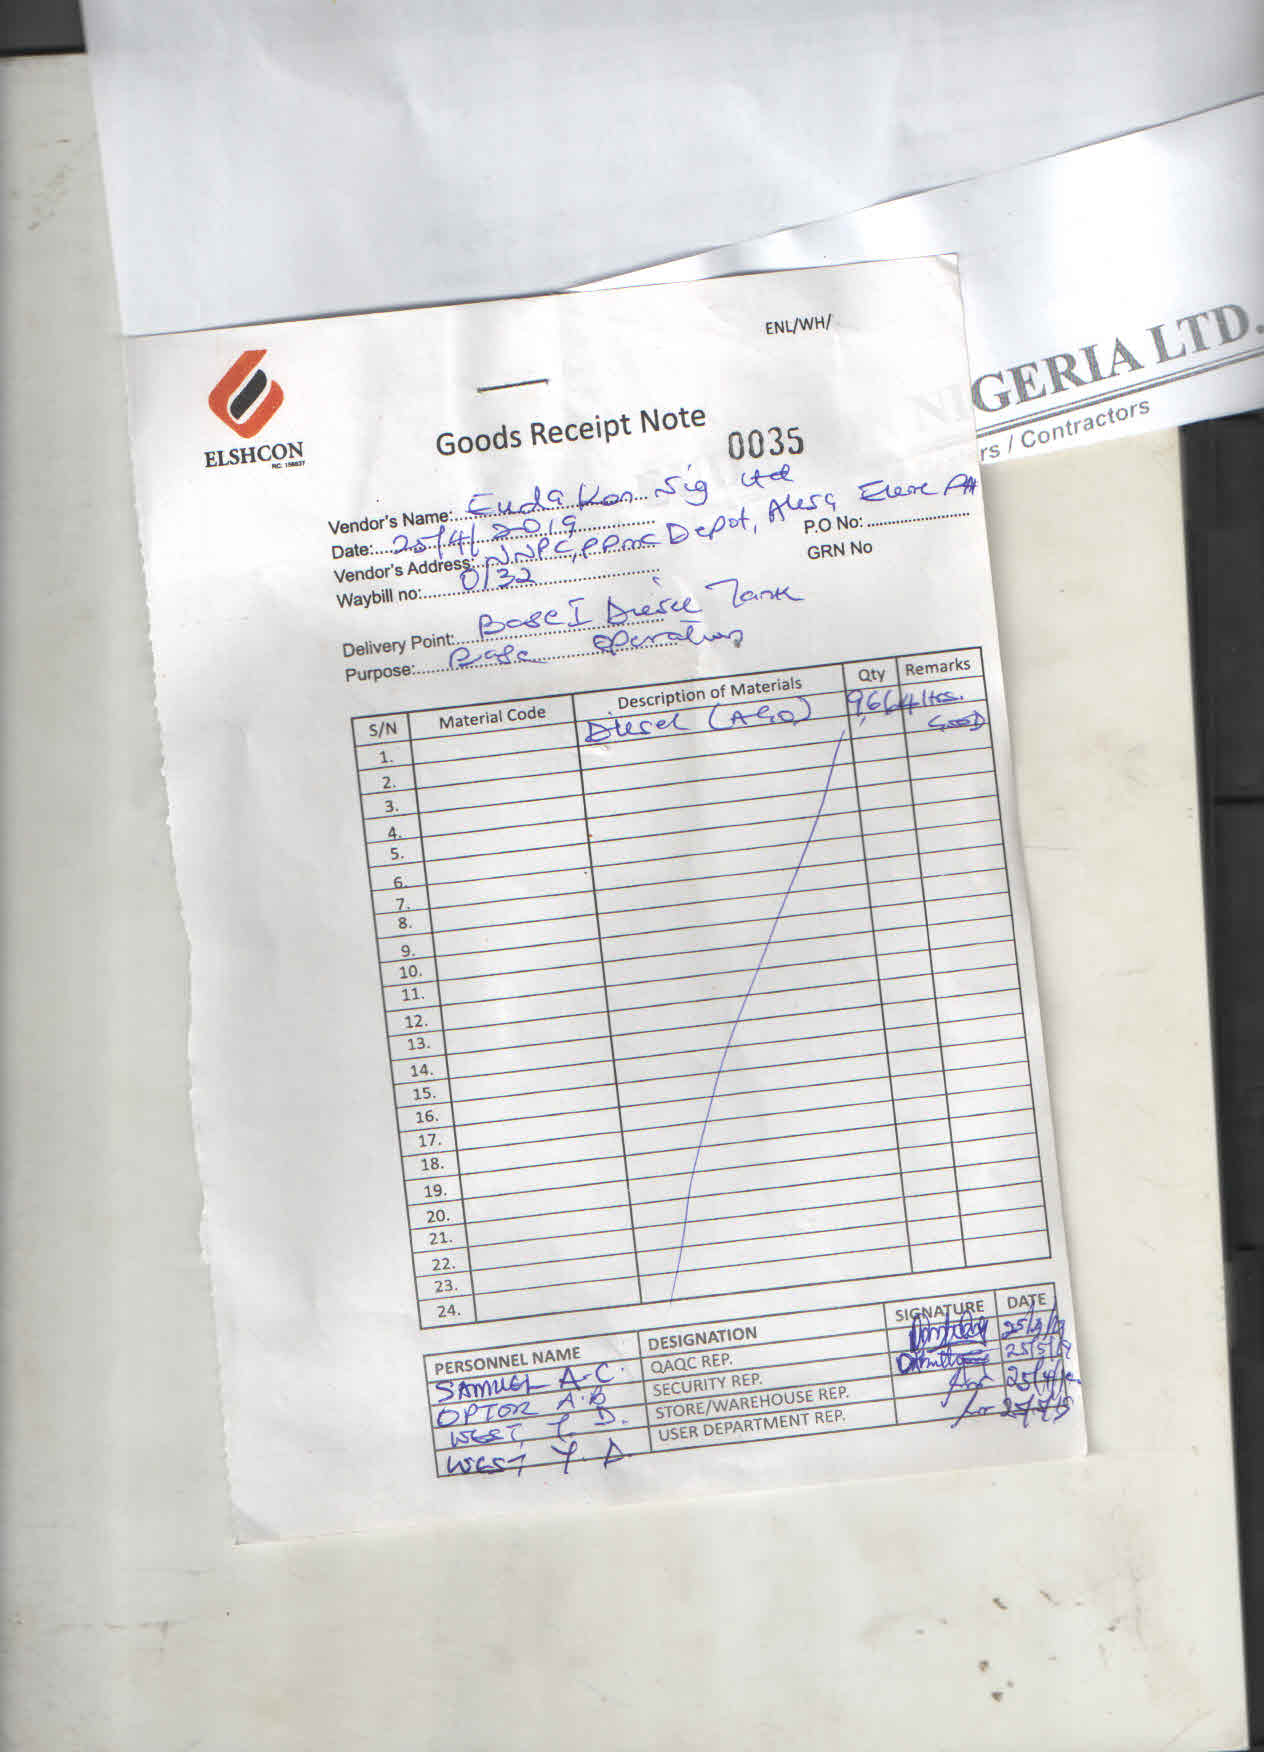 ENL/WH/
ELSHCON
RC: 156637
Goods Receipt Note
0035
NIGERIA LTD.
rs / Contractors
Vendor's Name: Euda Kon Nig Ltd
Date: 25/4/2019
P.O No:
Vendor's Address: NNPC, PPMC Depot, Alesa Eleme PH
GRN No
Waybill no: 0132
Delivery Point: Base I Diesel Tank
Purpose: Base Operations
S/N Material Code Description of Materials Qty Remarks
1. Diesel (AGO) 9,664 ltrs. GOOD
2.
3.
4.
5.
6.
7.
8.
9.
10.
11.
12.
13.
14.
15.
16.
17.
18.
19.
20.
21.
22.
23.
24.
PERSONNEL NAME DESIGNATION SIGNATURE DATE
SAMUEL A.C. QAQC REP.
OPTOR A.B SECURITY REP.
WEST, Y. D. STORE/WAREHOUSE REP. 25/4/19
WEST Y. D. USER DEPARTMENT REP.